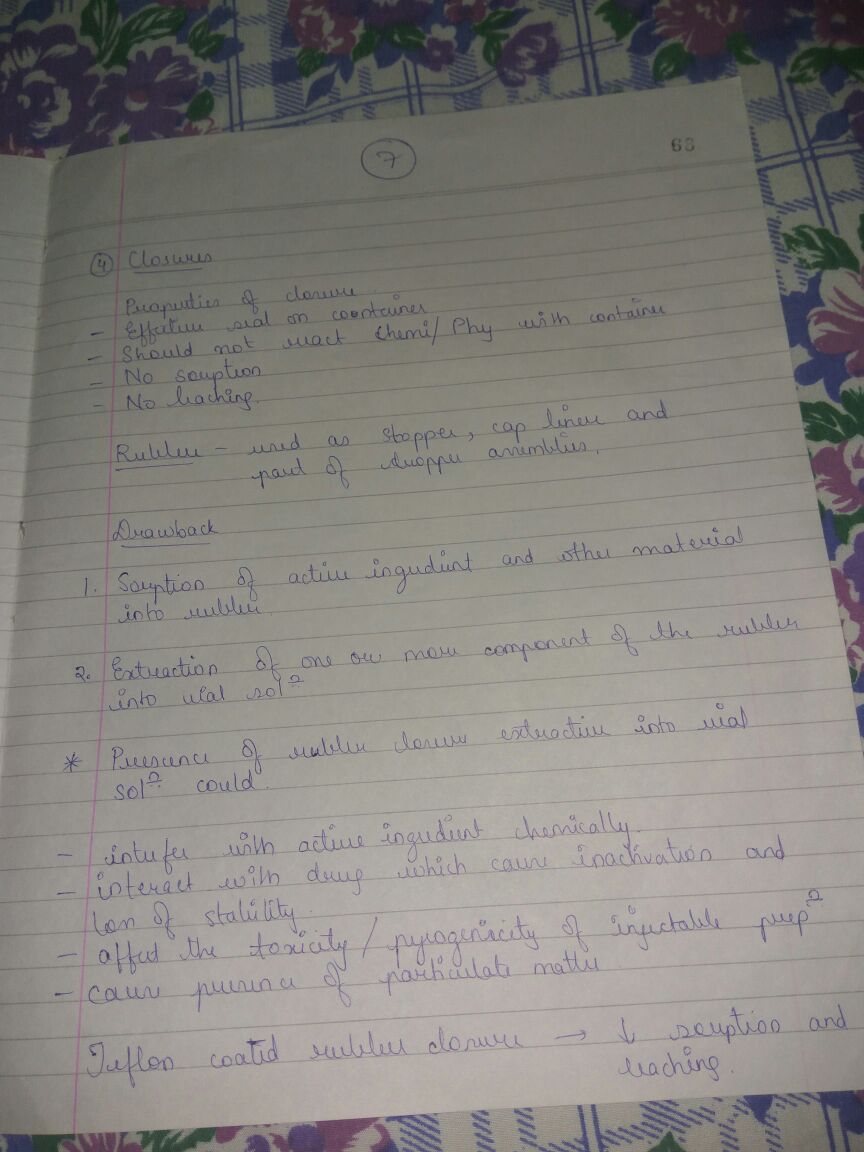 7
63
④ Closures
Properties of closure
- Effective seal on coontainer
- Should not react Chemi/Phy with container
- No sorption
- No leaching.
Rubber - used as stopper, cap liner and
part of dropper assemblies.
Drawback
1. Sorption of active ingredient and other material
into rubber.
2. Extraction of one or more component of the rubber
into vial solⁿ
* Presence of rubber closure extractive into vial
solⁿ could.
- interfer with active ingredient chemically.
- interact with drug which cause inactivation and
loss of stability.
- affect the toxicity / pyrogenicity of injectable prepⁿ
- cause presence of particulate matter
Teflon coated rubber closure → ↓ sorption and
leaching.